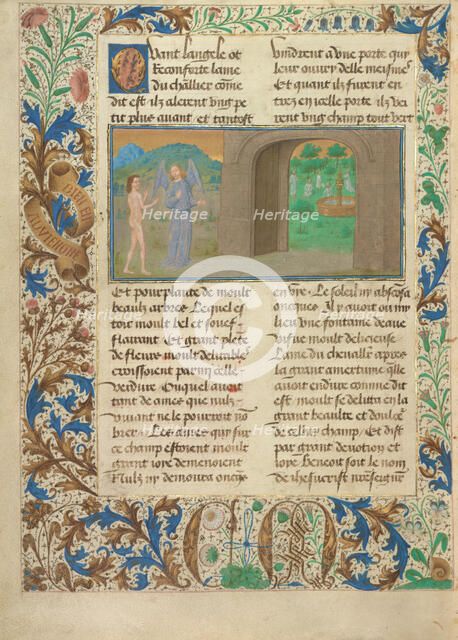 Quant langele ot
reconforte lame
du chllier come
dit est ilz alerent ung pe
tit plus auant et tantost
vindrent a une porte qui
leur ouury delle meismes
Et quant ilz furent en
trez en icelle porte ilz vei
rent ung champ tout vert
Et pour plante de moult
beaulx arbres Lequel es
toit moult bel et souef
flairant Et grant plete
de fleurs moult delitables
croissoient parmi celle
verdure Ouquel auoit
tant de ames que nulz
viuant ne le pourroit no
brer Lesquelles ames qui sur
ce champ estoient moult
grant ioye demenoient
Nulz ny demoura oncqs
enure Le soleil ny absconsa
oncques Il y auoit ou my
lieu une fontaine deaue
viue moult delicieuse
Lame du cheuallier apres
la grant amertune quelle
auoit endure comme dit
est moult se delita en la
grant beaulte et doulceur
de cellui champ Et dist
par grant deuotion et
ioye Benoit soit le nom
de ihesucrist nreseignr
Heritage
Heritage
Heritage
Heritage
Heritage